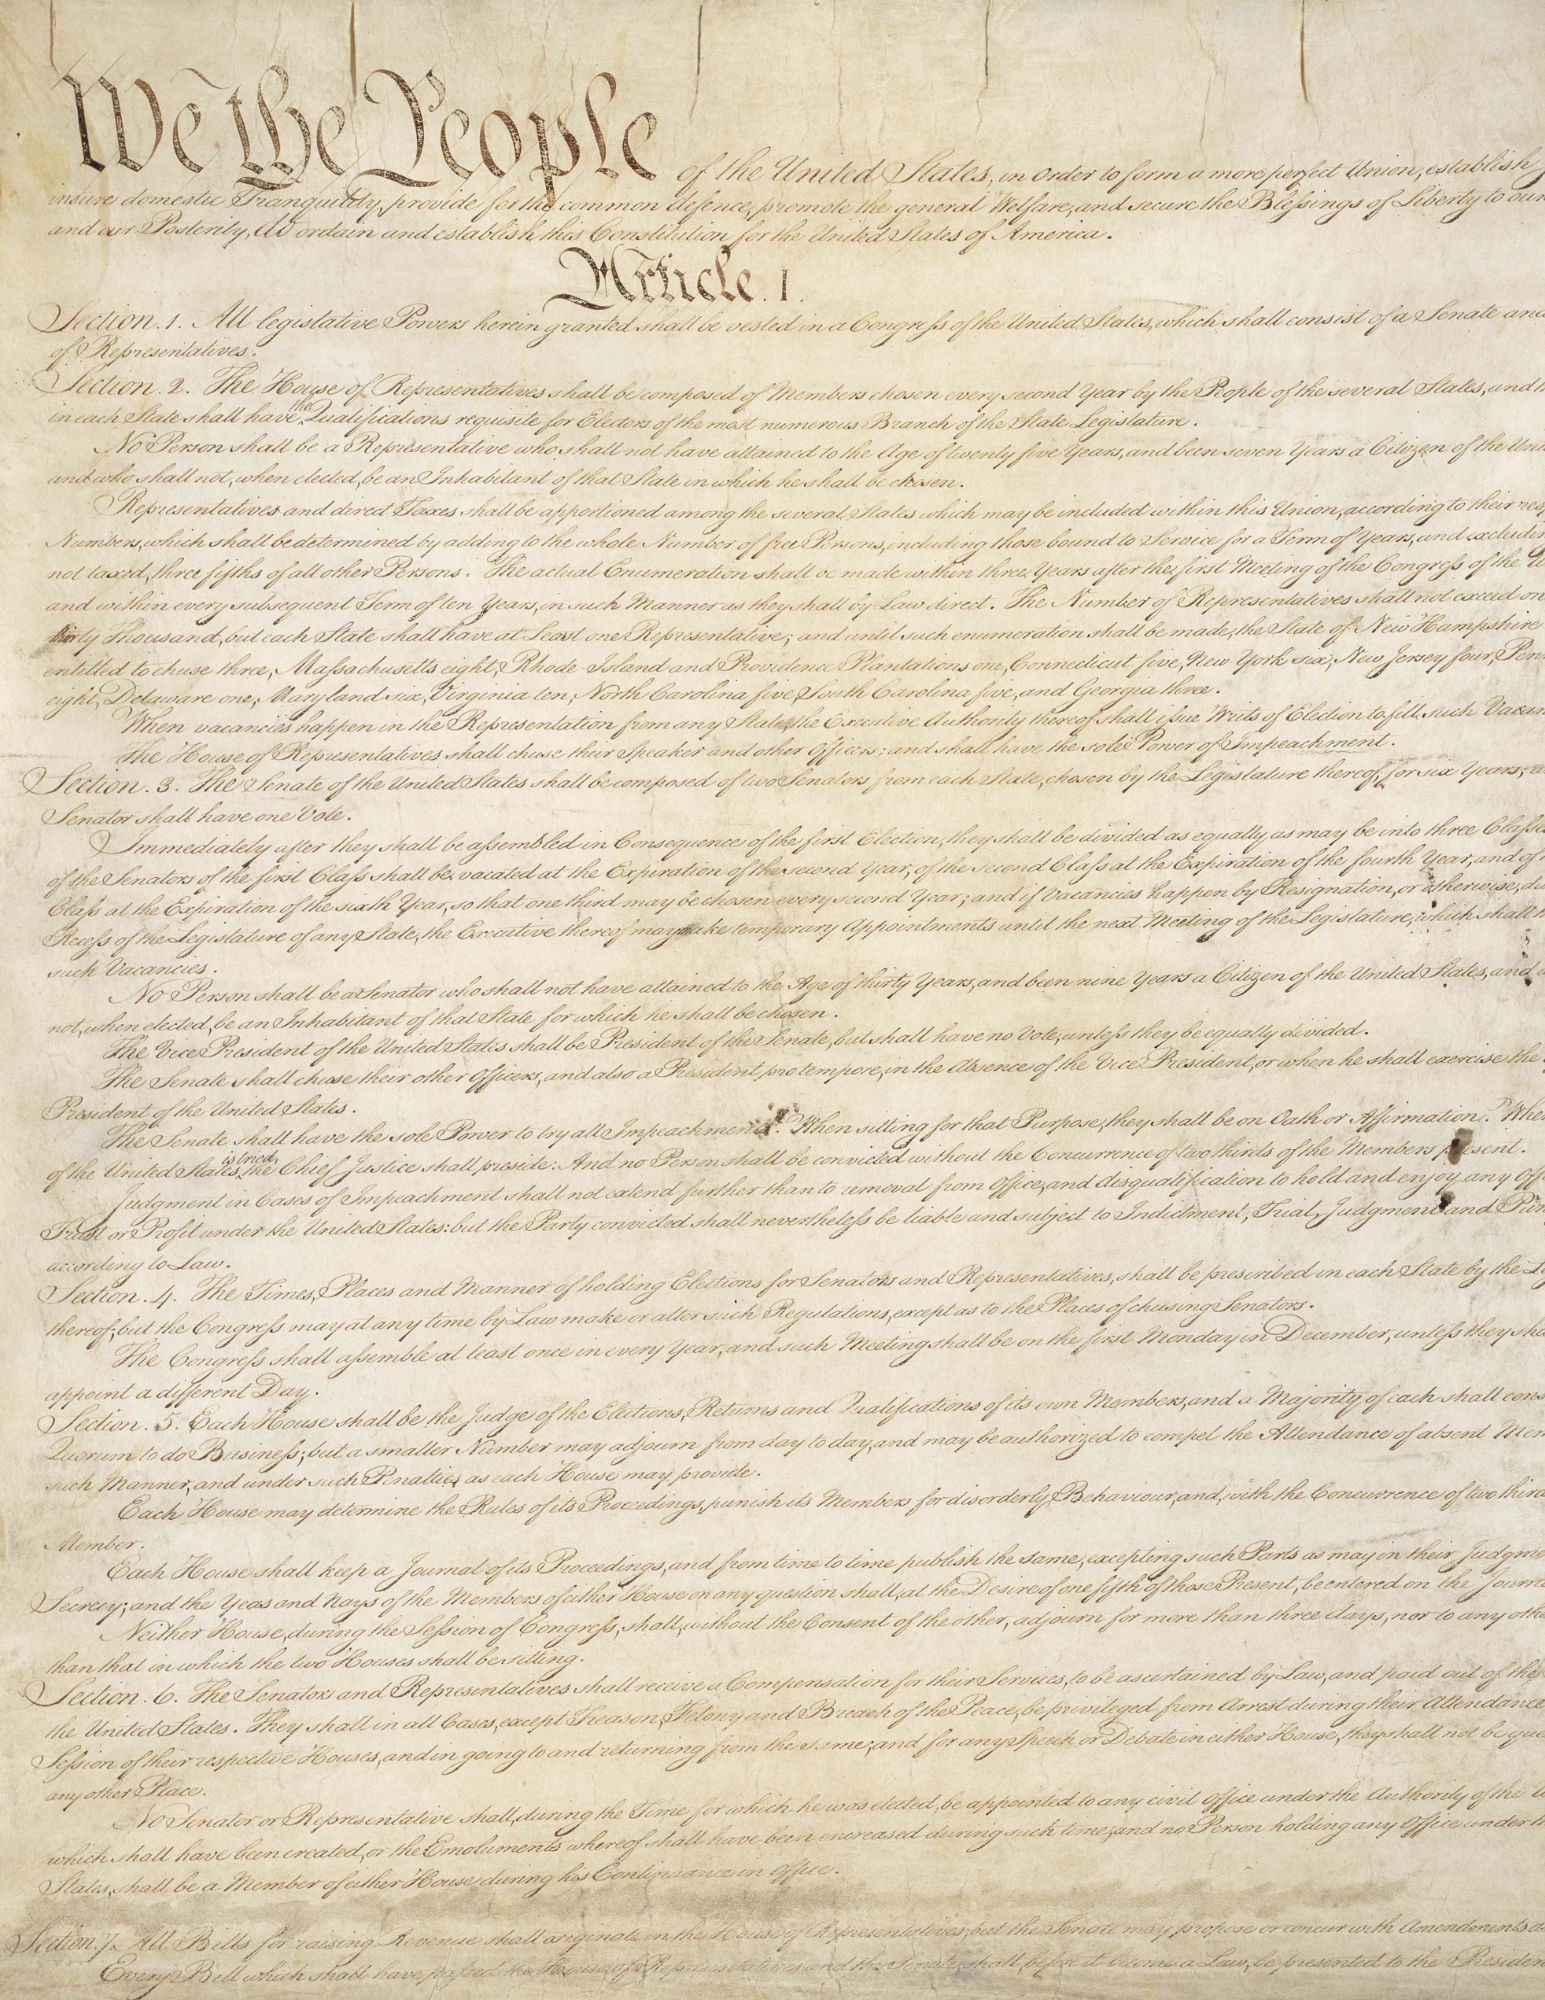 We the People of the United States, in Order to form a more perfect Union, establish
insure domestic Tranquility, provide for the common defence, promote the general Welfare, and secure the Blessings of Liberty to our
and our Posterity, do ordain and establish this Constitution for the United States of America.
Article. I.
Section. 1. All legislative Powers herein granted shall be vested in a Congress of the United States, which shall consist of a Senate and
of Representatives.
Section. 2. The House of Representatives shall be composed of Members chosen every second Year by the People of the several States, and
in each State shall have the Qualifications requisite for Electors of the most numerous Branch of the State Legislature.
No Person shall be a Representative who shall not have attained to the Age of twenty five Years, and been seven Years a Citizen of the
and who shall not, when elected, be an Inhabitant of that State in which he shall be chosen.
Representatives and direct Taxes shall be apportioned among the several States which may be included within this Union, according to their
Numbers, which shall be determined by adding to the whole Number of free Persons, including those bound to Service for a Term of Years, and
not taxed, three fifths of all other Persons. The actual Enumeration shall be made within three Years after the first Meeting of the Congress of the
and within every subsequent Term of ten Years, in such Manner as they shall by Law direct. The Number of Representatives shall not exceed
thirty Thousand, but each State shall have at Least one Representative; and until such enumeration shall be made, the State of New Hampshire
entitled to chuse three, Massachusetts eight, Rhode-Island and Providence Plantations one, Connecticut five, New-York six, New Jersey four,
eight, Delaware one, Maryland six, Virginia ten, North Carolina five, South Carolina five, and Georgia three.
When vacancies happen in the Representation from any State, the Executive Authority thereof shall issue Writs of Election to fill such
The House of Representatives shall chuse their Speaker and other Officers; and shall have the sole Power of Impeachment.
Section. 3. The Senate of the United States shall be composed of two Senators from each State, chosen by the Legislature thereof, for six Years;
Senator shall have one Vote.
Immediately after they shall be assembled in Consequence of the first Election, they shall be divided as equally as may be into three
of the Senators of the first Class shall be vacated at the Expiration of the second Year, of the second Class at the Expiration of the fourth Year, and of
Class at the Expiration of the sixth Year, so that one third may be chosen every second Year; and if Vacancies happen by Resignation, or otherwise,
Recess of the Legislature of any State, the Executive thereof may make temporary Appointments until the next Meeting of the Legislature, which shall
such Vacancies.
No Person shall be a Senator who shall not have attained to the Age of thirty Years, and been nine Years a Citizen of the United States, and
not, when elected, be an Inhabitant of that State for which he shall be chosen.
The Vice President of the United States shall be President of the Senate, but shall have no Vote, unless they be equally divided.
The Senate shall chuse their other Officers, and also a President pro tempore, in the Absence of the Vice President, or when he shall exercise the
President of the United States.
The Senate shall have the sole Power to try all Impeachments. When sitting for that Purpose, they shall be on Oath or Affirmation. When
of the United States is tried, the Chief Justice shall preside: And no Person shall be convicted without the Concurrence of two thirds of the Members present.
Judgment in Cases of Impeachment shall not extend further than to removal from Office, and disqualification to hold and enjoy any
Trust or Profit under the United States: but the Party convicted shall nevertheless be liable and subject to Indictment, Trial, Judgment and
according to Law.
Section. 4. The Times, Places and Manner of holding Elections for Senators and Representatives, shall be prescribed in each State by the
thereof; but the Congress may at any time by Law make or alter such Regulations, except as to the Places of chusing Senators.
The Congress shall assemble at least once in every Year, and such Meeting shall be on the first Monday in December, unless they
appoint a different Day.
Section. 5. Each House shall be the Judge of the Elections, Returns and Qualifications of its own Members, and a Majority of each shall
Quorum to do Business; but a smaller Number may adjourn from day to day, and may be authorized to compel the Attendance of absent
such Manner, and under such Penalties as each House may provide.
Each House may determine the Rules of its Proceedings, punish its Members for disorderly Behaviour, and, with the Concurrence of two
Member.
Each House shall keep a Journal of its Proceedings, and from time to time publish the same, excepting such Parts as may in their
Secrecy; and the Yeas and Nays of the Members of either House on any question shall, at the Desire of one fifth of those Present, be entered on the
Neither House, during the Session of Congress, shall, without the Consent of the other, adjourn for more than three days, nor to any
than that in which the two Houses shall be sitting.
Section. 6. The Senators and Representatives shall receive a Compensation for their Services, to be ascertained by Law, and paid out of the
the United States. They shall in all Cases, except Treason, Felony and Breach of the Peace, be privileged from Arrest during their Attendance
Session of their respective Houses, and in going to and returning from the same; and for any Speech or Debate in either House, they shall not be
any other Place.
No Senator or Representative shall, during the Time for which he was elected, be appointed to any civil Office under the Authority of the
which shall have been created, or the Emoluments whereof shall have been encreased during such time; and no Person holding any Office under
States, shall be a Member of either House during his Continuance in Office.
Section. 7. All Bills for raising Revenue shall originate in the House of Representatives; but the Senate may propose or concur with Amendments
Every Bill which shall have passed the House of Representatives and the Senate, shall, before it become a Law, be presented to the President